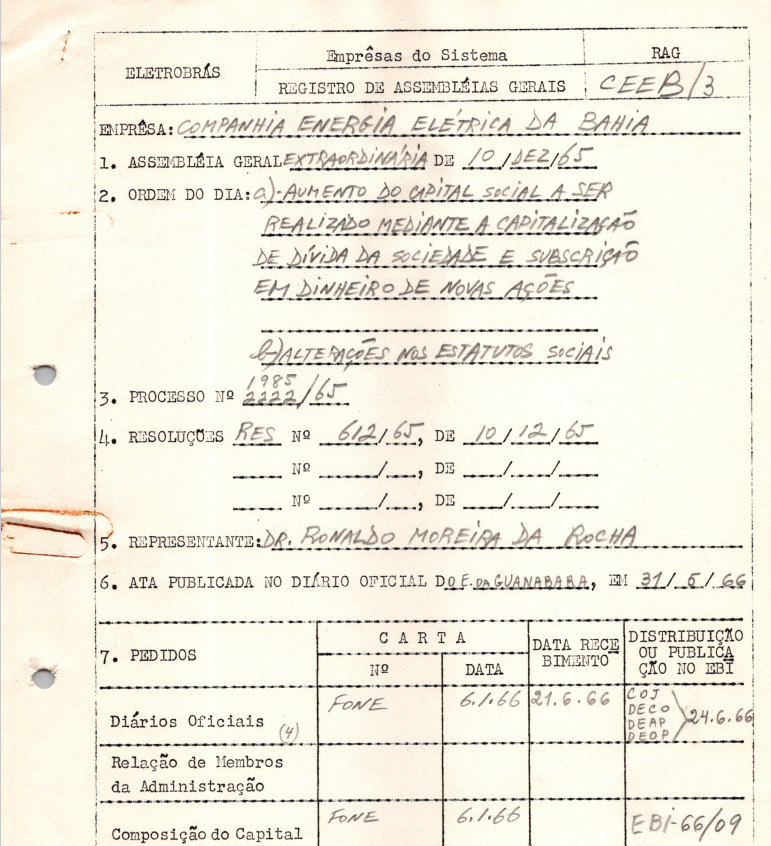 ELETROBRÁS
Emprêsas do Sistema
REGISTRO DE ASSEMBLÉIAS GERAIS
RAG
CEEB/3
EMPRÊSA: COMPANHIA ENERGIA ELÉTRICA DA BAHIA
1. ASSEMBLÉIA GERAL EXTRAORDINÁRIA DE 10/DEZ/65
2. ORDEM DO DIA: a)-AUMENTO DO CAPITAL SOCIAL A SER
REALIZADO MEDIANTE A CAPITALIZAÇÃO
DE DÍVIDA DA SOCIEDADE E SUBSCRIÇÃO
EM DINHEIRO DE NOVAS AÇÕES
b-)ALTERAÇÕES NOS ESTATUTOS SOCIAIS
1985
3. PROCESSO Nº 2222/65
4. RESOLUÇÕES RES Nº 612/65, DE 10/12/65
Nº / , DE / /
Nº / , DE / /
5. REPRESENTANTE: DR. RONALDO MOREIRA DA ROCHA
6. ATA PUBLICADA NO DIÁRIO OFICIAL DO E. DA GUANABARA, EM 31/5/66
7. PEDIDOS
C A R T A
Nº
DATA
DATA RECE
BIMENTO
DISTRIBUIÇÃO
OU PUBLICA
ÇÃO NO EBI
Diários Oficiais (4)
FONE
6.1.66
21.6.66
COJ
DECO
DEAP
DEOP
24.6.66
Relação de Membros
da Administração
Composição do Capital
FONE
6.1.66
EBI-66/09